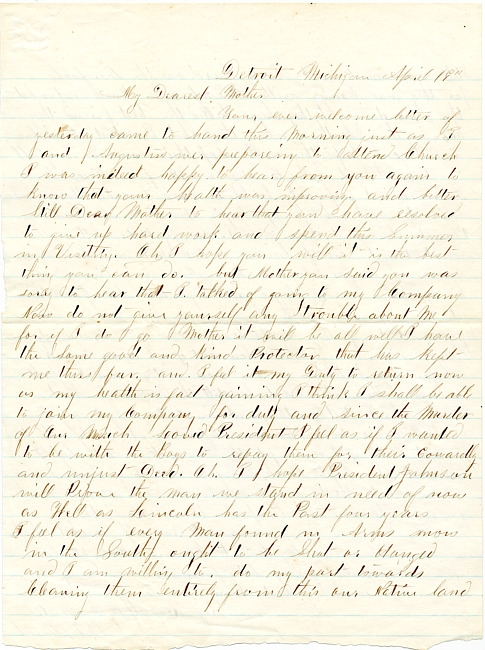 Detroit Michigan April 19th
My Dearest Mother
Your ever welcome letter of
yesterday came to hand this Morning just as I
and Augustus wer prepareing to attend Church
I was indeed happy to hear from you again to
know that your health was improving and better
still Dear Mother to hear that you have resolved
to give up hard work and spend this Summer
in Visiting. Oh I hope you will it is the best
thing you can do. but Mother you said you was
sory to hear that I talked of going to my Company
Now do not give yourself any trouble about Me
for if I do go Mother it will be all well I have
the same good and kind Protector that has kept
me thus far. and I feel it my Duty to return now
as my health is fast gaining I think I shall be able
to join my Company for duty and since the Murder
of Our Much Loved President I feel as if I wanted
to be with the boys to repay them for their Cowardly
and unjust Deed. Oh I hope President Johnson
will Prove the man we stand in need of now
as Well as Lincoln has the Past four years
I feel as if every Man found in Arms now
in the South ought to be Shot or Hanged
and I am willing to do my part towards
Cleaning them entirely from this our Native land